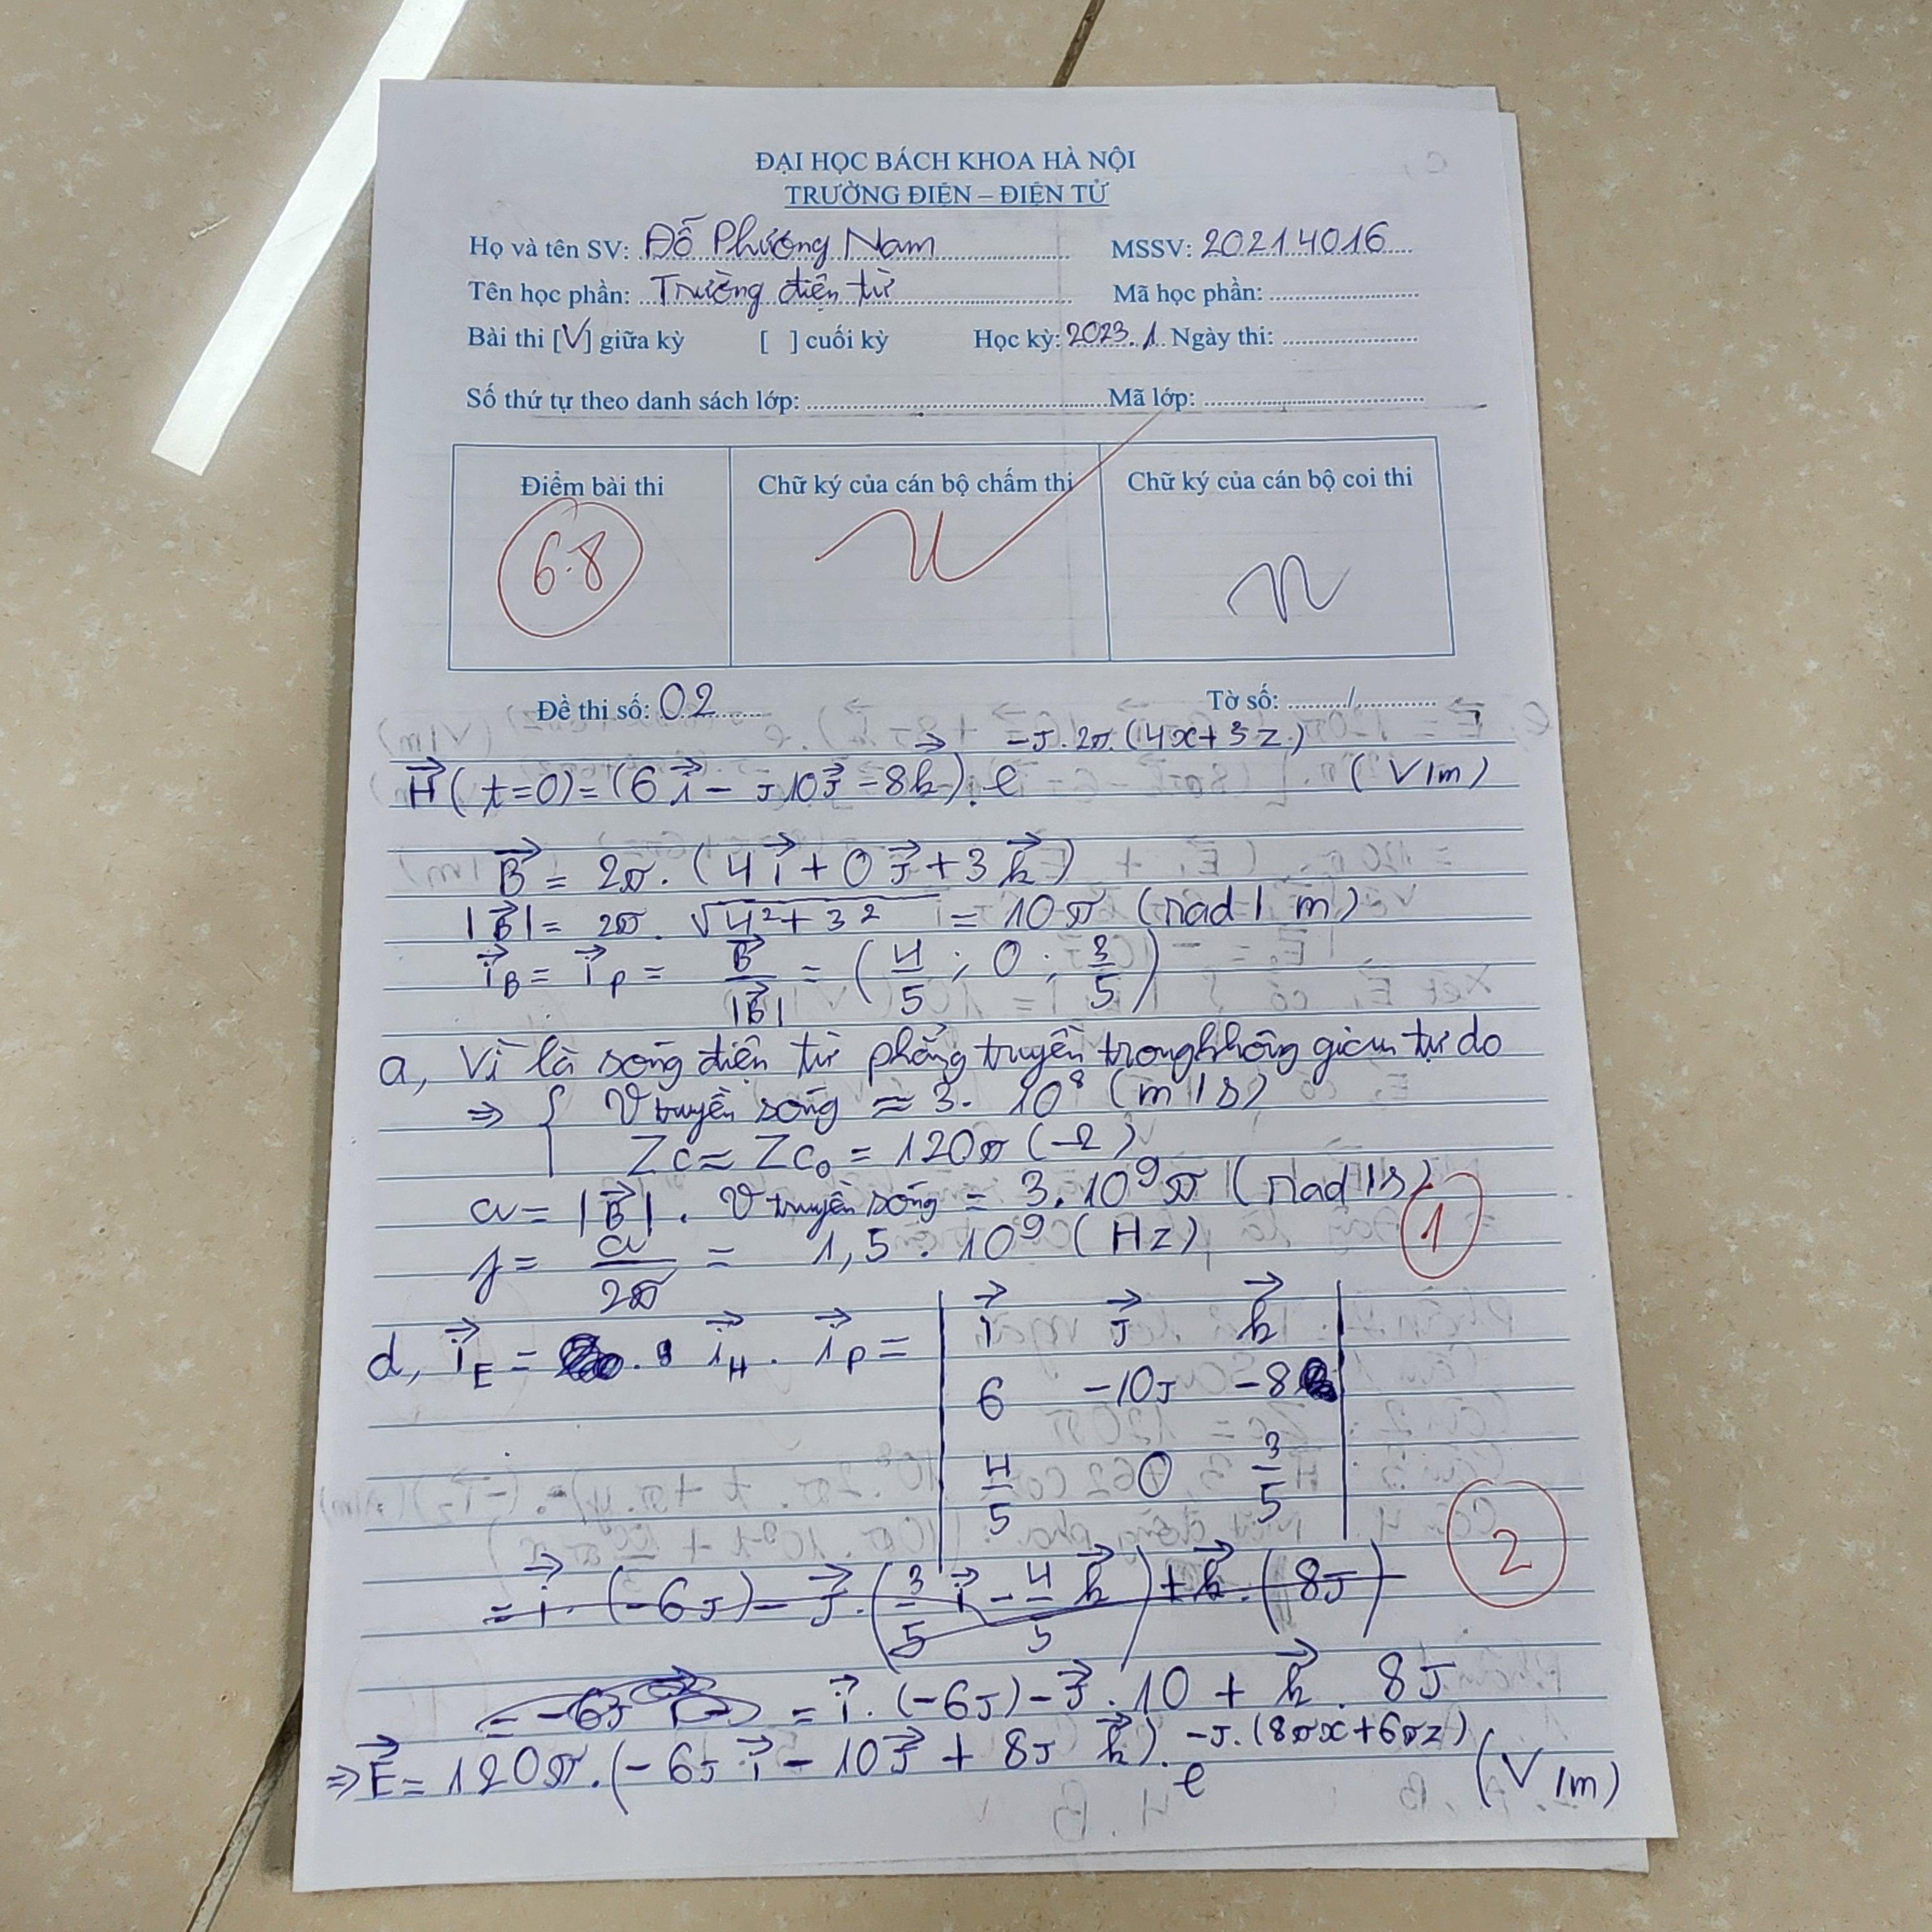 ĐẠI HỌC BÁCH KHOA HÀ NỘI
TRƯỜNG ĐIỆN – ĐIỆN TỬ
Họ và tên SV: Đỗ Phương Nam MSSV: 20214016
Tên học phần: Trường điện từ Mã học phần:
Bài thi [V] giữa kỳ [ ] cuối kỳ Học kỳ: 2023.1 Ngày thi:
Số thứ tự theo danh sách lớp: Mã lớp:
Điểm bài thi Chữ ký của cán bộ chấm thi Chữ ký của cán bộ coi thi
6.8
Đề thi số: 02 Tờ số: ......../............
H⃗(t=0) = (6i⃗ - J10J⃗ - 8k⃗).e^(-J.2π.(4x+3z)) (V/m)
B⃗ = 2π.(4i⃗ + 0J⃗ + 3k⃗)
|B⃗| = 2π.√(4²+3²) = 10π (rad/m)
i⃗_B = i⃗_P = B⃗/|B⃗| = (4/5; 0; 3/5)
a, Vì là sóng điện từ phẳng truyền trong không gian tự do
⇒ { V truyền sóng ≈ 3.10⁸ (m/s)
Zc ≈ Zc₀ = 120π (Ω)
ω = |B⃗|. V truyền sóng = 3.10⁹π (rad/s)
1
f = ω/2π = 1,5.10⁹ (Hz)
d, i⃗_E = i⃗_H . i⃗_P = | i⃗ J⃗ k⃗ |
6 -10J -8
4/5 0 3/5
2
= i⃗.(-6J) - J⃗.(3/5 i⃗ - 4/5 k⃗) + k⃗.(8J)
= i⃗.(-6J) - J⃗.10 + k⃗.8J
⇒ E⃗ = 120π.(-6J i⃗ - 10J⃗ + 8J k⃗).e^(-J.(8πx+6πz)) (V/m)